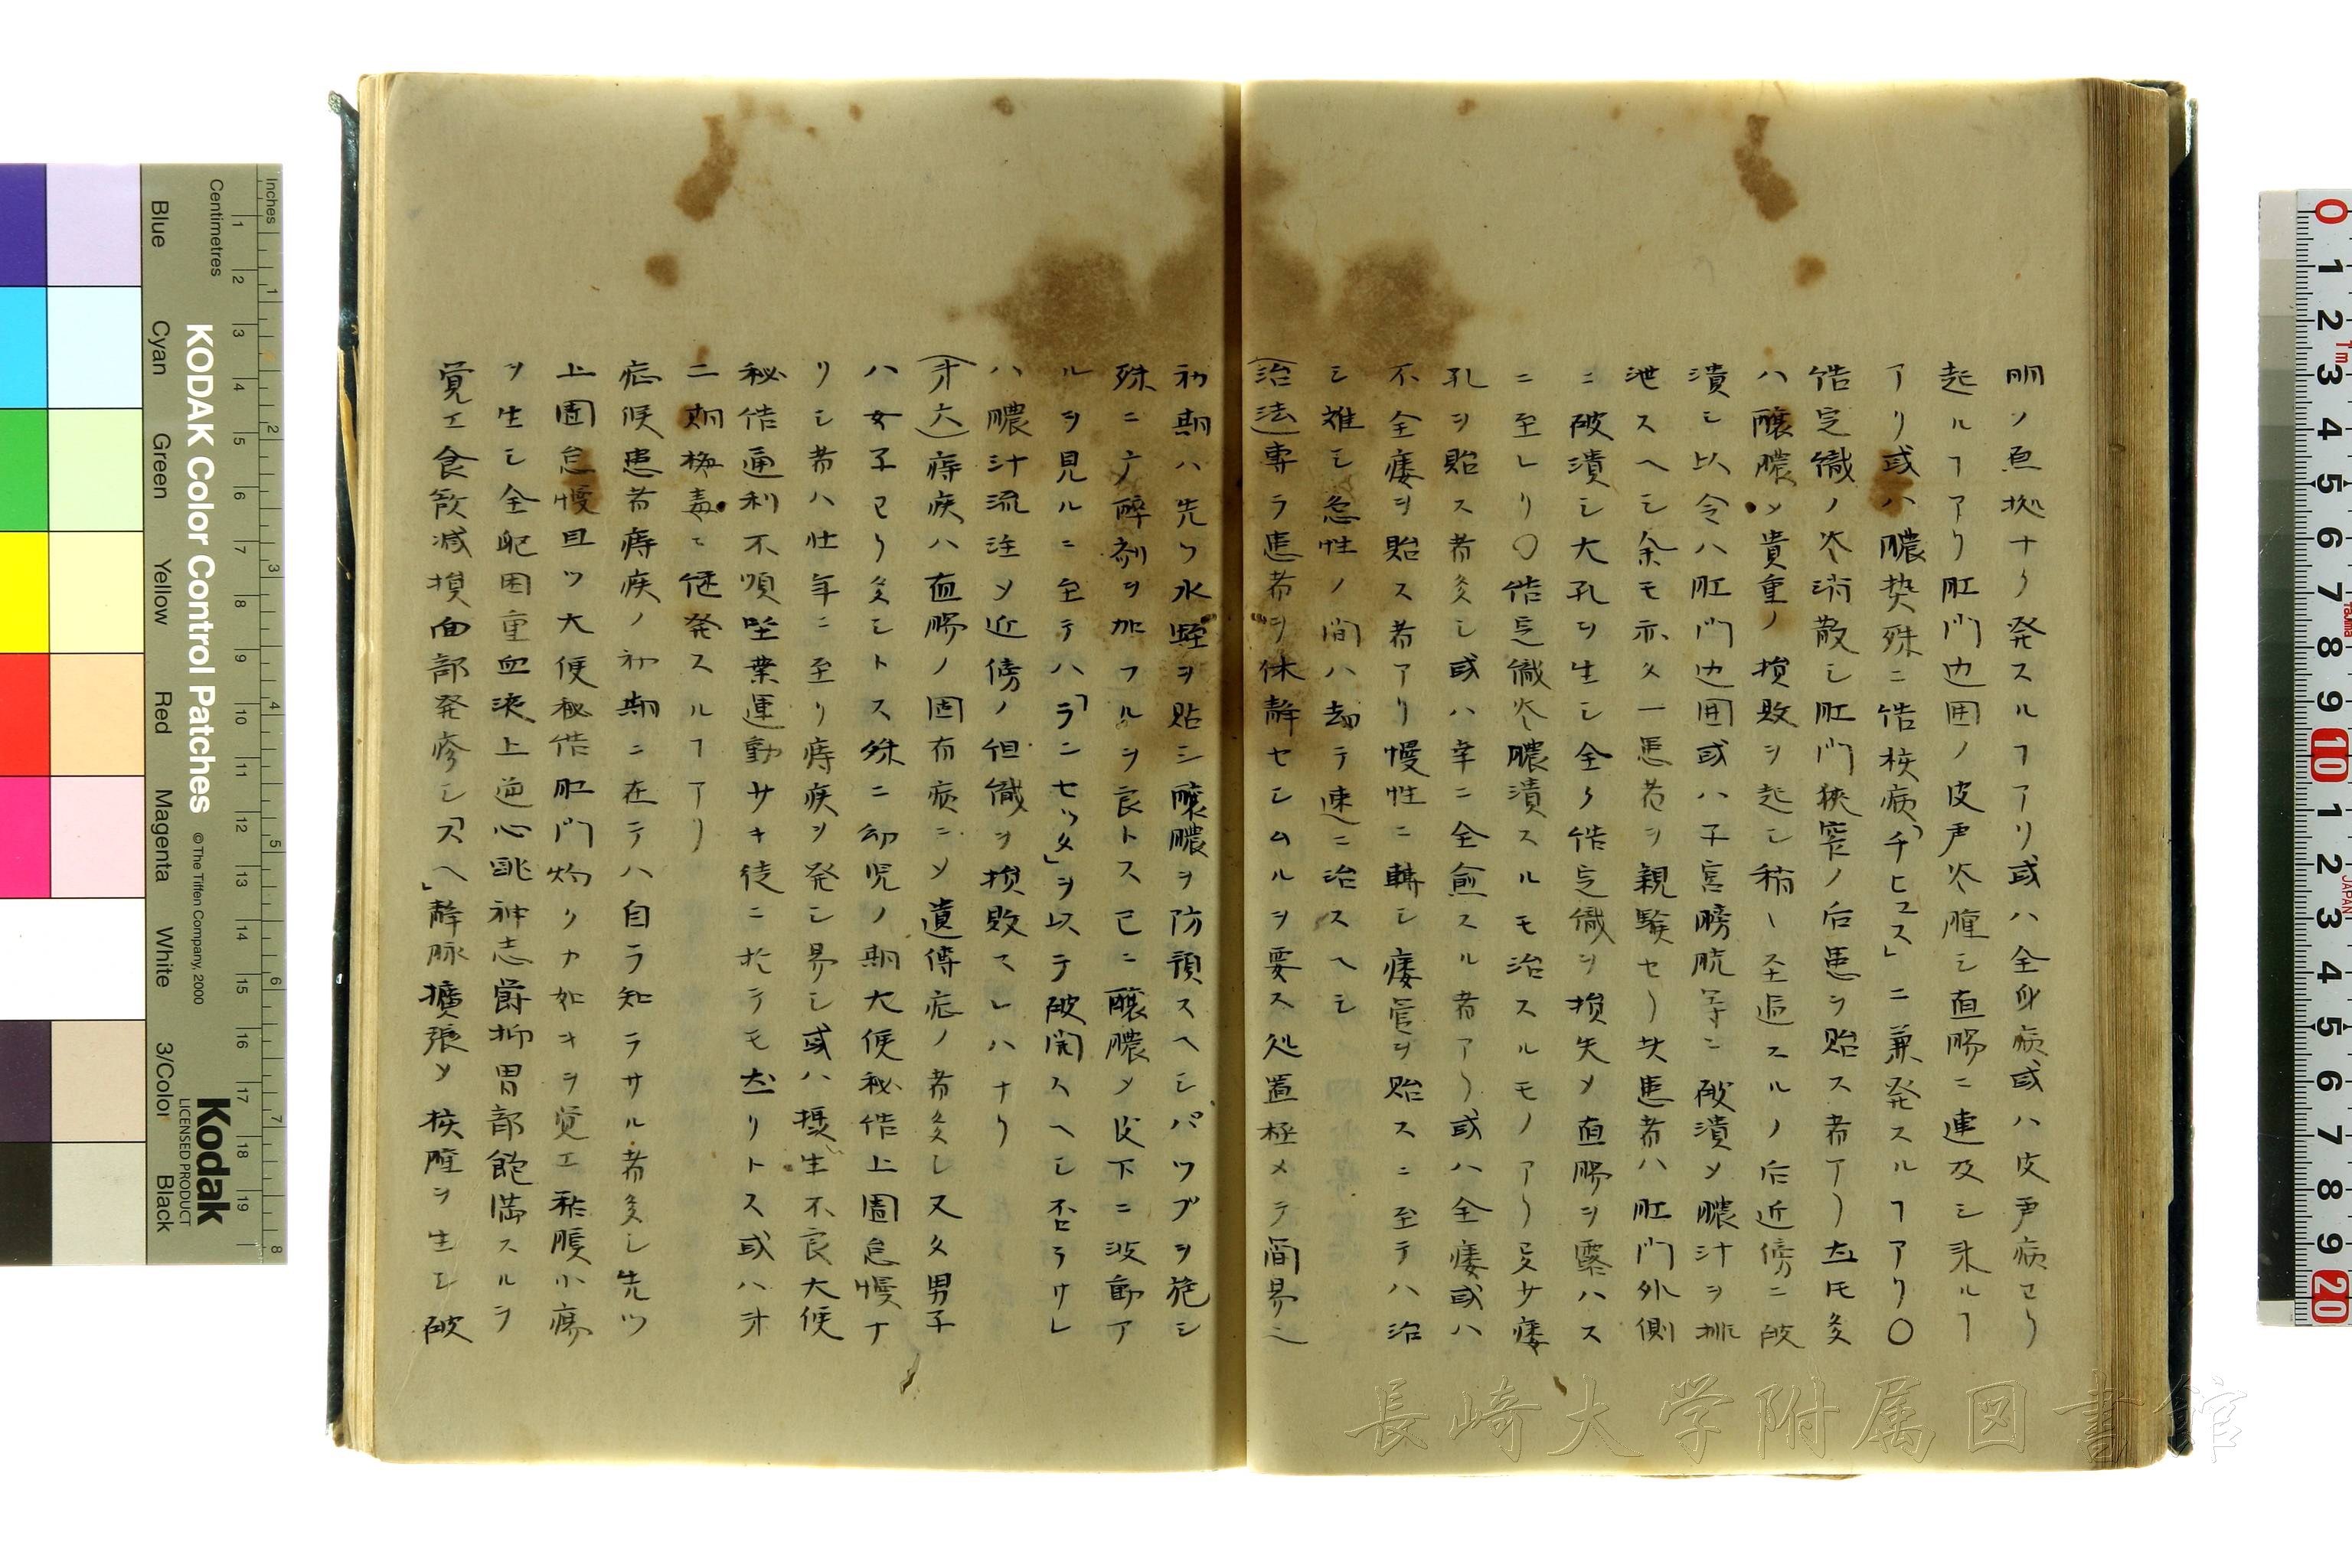 明ノ原拠ナク発スルヿアリ或ハ全身病或ハ皮声病ヨリ
起ルヿアリ肛門辺囲ノ皮声炎腫シ直腸ニ連及シ来ルヿ
アリ或ハ膿㔟殊ニ結核病「チヒュス」ニ兼発スルヿアリ〇
結定織ノ炎消散シ肛門狭窄ノ后患ヲ貽ス者アリ尤モ多
ハ醸膿メ貴重ノ損敗ヲ起シ稍〻荏苒スルノ后近傍ニ破
潰シ以令ハ肛門辺囲或ハ子宮膀胱等ニ破潰メ膿汁ヲ排
泄スヘシ余モ亦タ一患者ヲ親験セリ其患者ハ肛門外側
ニ破潰シ大孔ヲ生シ全ク結定織ヲ損失メ直腸ヲ露ハス
ニ至レリ〇結定織炎膿潰スルモ治スルモノアリ足サ瘻
孔ヲ貽ス者多シ或ハ幸ニ全愈スル者アリ或ハ全瘻或ハ
不全瘻ヲ貽ス者アリ慢性ニ轉シ瘻管ヲ貽スニ至テハ治
シ難シ急性ノ間ハ却テ速ニ治スヘシ
(治法)専ラ患者ヲ休静セシムルヲ要ス処置極メテ簡易ニ
初期ハ先ツ水蛭ヲ貼シ醸膿ヲ防預スヘシパップヲ施シ
殊ニ亠酔剤ヲ加フルヲ良トス已ニ醸膿メ皮下ニ波動ア
ルヲ見ルニ至テハ「ランセッタ」ヲ以テ破開スヘシ否ラサレ
ハ膿汁流注メ近傍ノ但織ヲ損敗マレハナリ
(才六)痔疾ハ直腸ノ固有病ニメ遺傳症ノ者多シ又タ男子
ハ女子ヨリ多シトス殊ニ幼児ノ期大便秘結上圊怠慢ナ
リシ者ハ壮年ニ至リ痔疾ヲ発シ易シ或ハ摂生不良大便
秘結通利不順坐業運動サキ徒ニ於テモ尤リトス或ハ才
二期梅毒ニ継発スルヿアリ
症候患者痔疾ノ初期ニ在テハ自ラ知ラサル者多シ先ツ
上圊怠慢且ツ大便秘結肛門灼リカ如キヲ覚エ稀腹小瘍
ヲ生シ全躯困重血液上逆心跳神志鬱抑胃部飽満スルヲ
覚エ食欲減損面部発疹シ「ス、ヘ」静脉擴張メ核腫ヲ生シ破
Inches
Centimetres
KODAK Color Control Patches
© The Tiffen Company, 2000
Kodak
LICENSED PRODUCT
Blue Cyan Green Yellow Red Magenta White 3/Color Black
JAPAN
長崎大学附属図書館